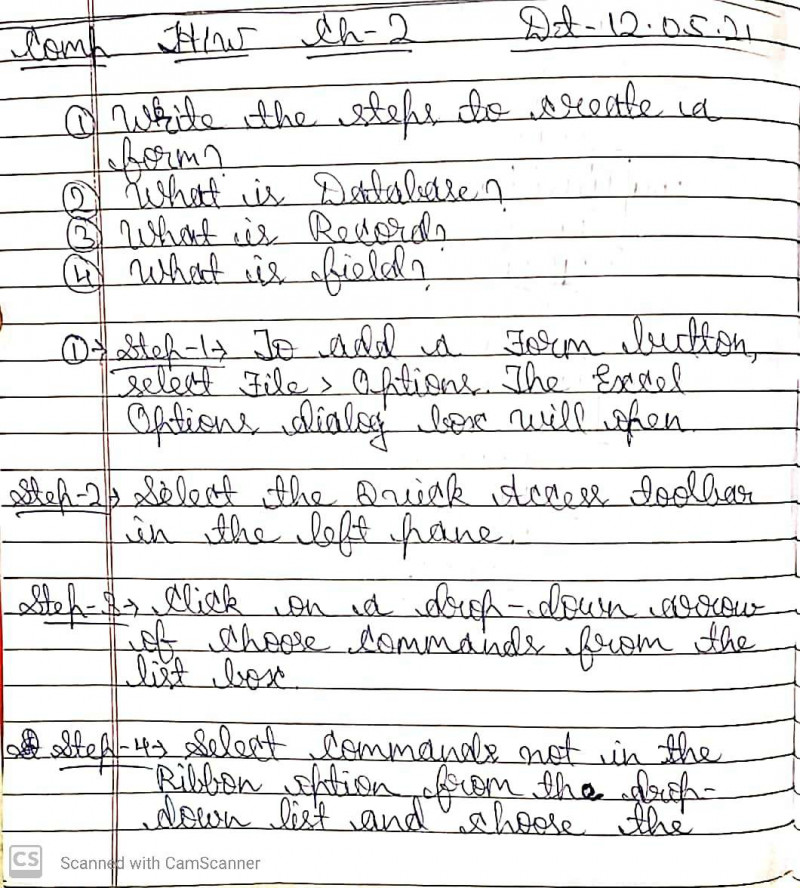 Comp H/W Ch-2 Dt-12.05.21
① Write the steps to create a
form?
② What is Database?
③ What is Record?
④ What is field?
①→ Step-1→ To add a Form button,
select File > Options. The Excel
Options dialog box will open.
Step-2→ Select the Quick Access toolbar
in the left pane.
Step-3→ Click on a drop-down arrow
of choose commands from the
list box.
Step-4→ Select Commands not in the
Ribbon option from the drop-
down list and choose the
CS Scanned with CamScanner